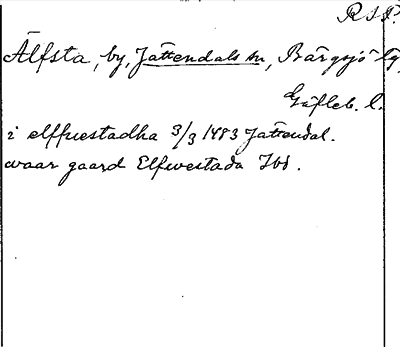 RSP.
Älfsta, by, Jättendals sn, Bärgsjö tg,
Gäfleb. l.
i elffuestadha 3/3 1483 Jättendal.
waar gaard Elfwestada Ibd.